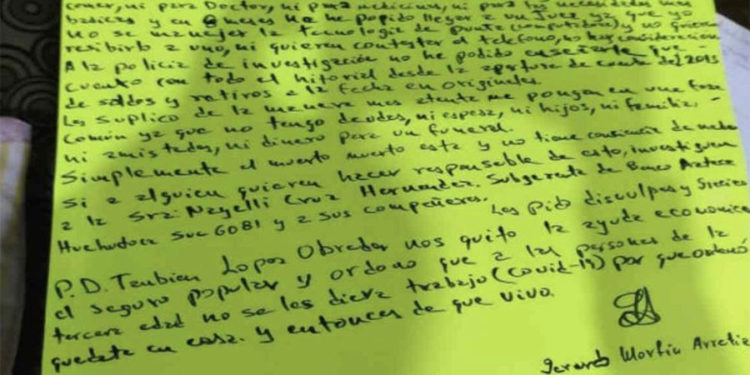 comer, ni para Doctor, ni para medicinas, ni para las necesidades mas
basicas y en 6 meses no he podido llegar a un Juez ya que yo
no se manejar la tecnologia de punta (computadora) y no quieren
recibirlo a uno, ni quieren contestar el telefono, no hay consideracion
A la policia de investigación no he podido enseñarle que
cuento con todo el historial desde la apertura de cuenta del 2015
de saldos y retiros a la fecha en originales.
Les suplico de la manera mas atenta me pongan en una fosa
común ya que no tengo deudos, ni esposa, ni hijos, ni familia,
ni amistades, ni dinero para un funeral.
Simplemente el muerto muerto esta y no tiene conciencia de nada
si a alguien quieren hacer responsable de esto, investiguen
a la Sra: Nayelli Cruz Hernandez. Subgerente de Banco Azteca
Huehuetoca Suc 6081 y a sus compañeros.
Les Pido disculpas y Gracias
P.D. Tambien Lopez Obrador nos quito la ayuda economica
el seguro popular y ordono que a las personas de la
tercera edad no se les diera trabajo (Covid-19) por que ordenó
quedate en casa. y entonces de que vivo.
Gerardo Morfin